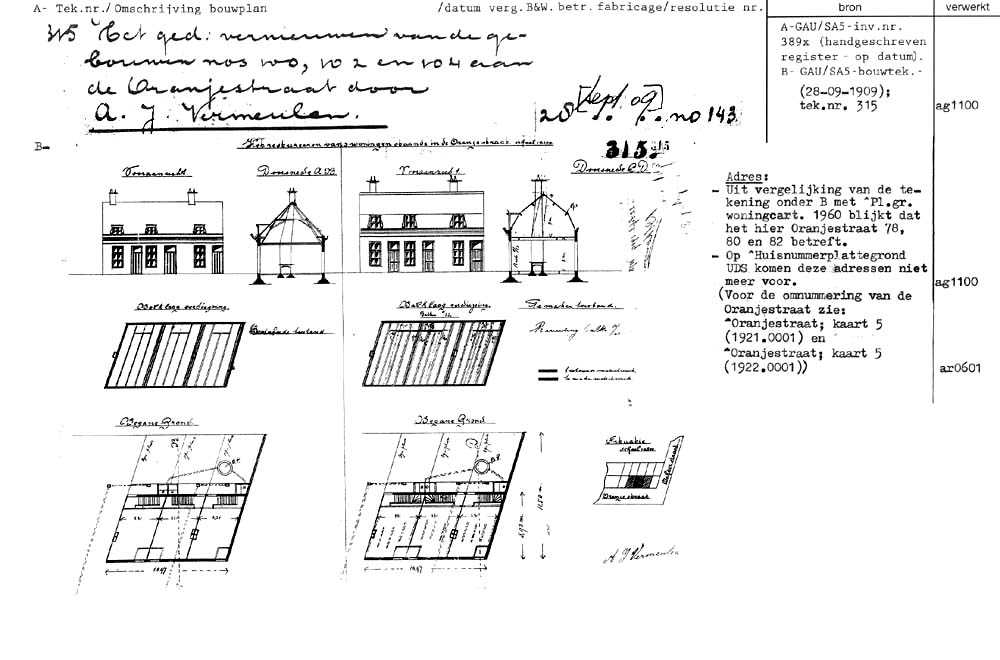 A- Tek.nr./Omschrijving bouwplan /datum verg.B&W.betr.fabricage/resolutie nr. bron verwerkt
315 Het ged: vernieuwen van de ge-
bouwen nos 100, 102 en 104 aan
de Oranjestraat door
A. J. Vermeulen.
28 [Sept. 09] no 143
A-GAU/SA5-inv.nr.
389x (handgeschreven
register - op datum).
B- GAU/SA5-bouwtek.-
(28-09-1909);
tek.nr. 315
ag1100
B-
Het verbouwen van 3 woningen staande in de Oranjestraat
315
Vooraanzicht
Doorsnede A.B.
Vooraanzicht
Doorsnede C.D.
Balklaag verdieping
Bestaande toestand
Balklaag verdieping
Gemaakte toestand
Begane Grond
Begane Grond
10.97
10.97
Situatie
Oranjestraat
A J Vermeulen
Adres:
- Uit vergelijking van de te-
kening onder B met ^Pl.gr.
woningcart. 1960 blijkt dat
het hier Oranjestraat 78,
80 en 82 betreft.
- Op ^Huisnummerplattegrond
UDS komen deze adressen niet
meer voor.
ag1100
(Voor de omnummering van de
Oranjestraat zie:
^Oranjestraat; kaart 5
(1921.0001) en
^Oranjestraat; kaart 5
(1922.0001))
ar0601